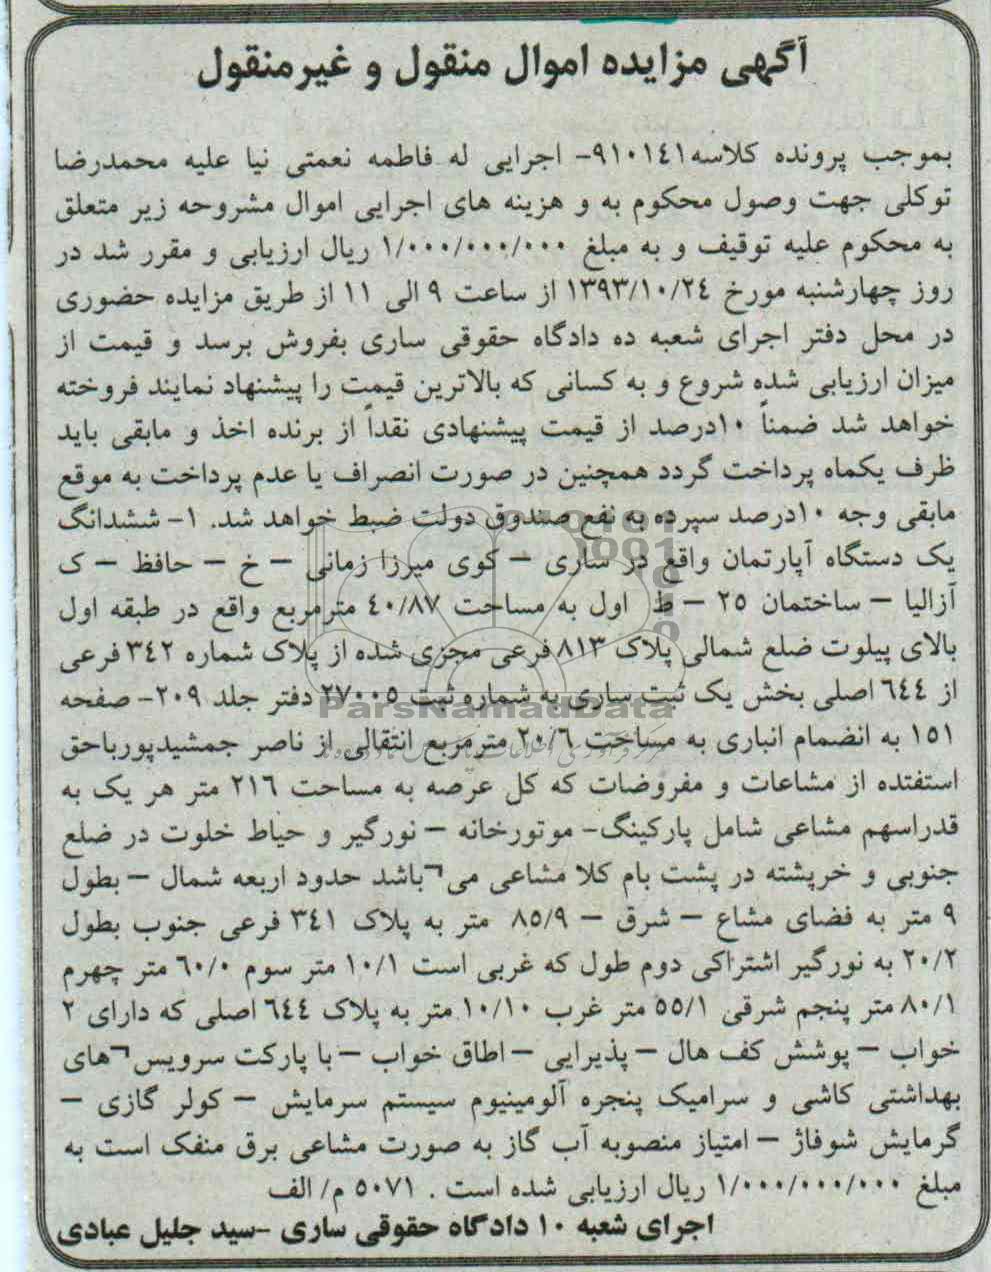 آگهی مزایده اموال منقول و غیرمنقول
بموجب پرونده کلاسه۹۱۰۱٤۱- اجرایی له فاطمه نعمتی نیا علیه محمدرضا
توکلی جهت وصول محکوم به و هزینه های اجرایی اموال مشروحه زیر متعلق
به محکوم علیه توقیف و به مبلغ ۱/۰۰۰/۰۰۰/۰۰۰ ریال ارزیابی و مقرر شد در
روز چهارشنبه مورخ ۱۳۹۳/۱۰/۲٤ از ساعت ۹ الی ۱۱ از طریق مزایده حضوری
در محل دفتر اجرای شعبه ده دادگاه حقوقی ساری بفروش برسد و قیمت از
میزان ارزیابی شده شروع و به کسانی که بالاترین قیمت را پیشنهاد نمایند فروخته
خواهد شد ضمناً ۱۰درصد از قیمت پیشنهادی نقداً از برنده اخذ و مابقی باید
ظرف یکماه پرداخت گردد همچنین در صورت انصراف یا عدم پرداخت به موقع
مابقی وجه ۱۰درصد سپرده به نفع صندوق دولت ضبط خواهد شد. ۱- ششدانگ
یک دستگاه آپارتمان واقع در ساری – کوی میرزا زمانی – خ – حافظ – ک
آزالیا – ساختمان ۲۵ – ط اول به مساحت ٤۰/۸۷ مترمربع واقع در طبقه اول
بالای پیلوت ضلع شمالی پلاک ۸۱۳ فرعی مجزی شده از پلاک شماره ۳٤۲ فرعی
از ٦٤٤ اصلی بخش یک ثبت ساری به شماره ثبت ۲۷۰۰۵ دفتر جلد ۲۰۹- صفحه
ParsNamadData
۱۵۱ به انضمام انباری به مساحت ۲۰/٦ مترمربع انتقالی از ناصر جمشیدپورباحق
استفتده از مشاعات و مفروضات که کل عرصه به مساحت ۲۱٦ متر هر یک به
قدراسهم مشاعی شامل پارکینگ- موتورخانه – نورگیر و حیاط خلوت در ضلع
جنوبی و خرپشته در پشت بام کلا مشاعی می¬باشد حدود اربعه شمال – بطول
۹ متر به فضای مشاع – شرق – ۸۵/۹ متر به پلاک ۳٤۱ فرعی جنوب بطول
۲۰/۲ به نورگیر اشتراکی دوم طول که غربی است ۱۰/۱ متر سوم ٦۰/۰ متر چهرم
۸۰/۱ متر پنجم شرقی ۵۵/۱ متر غرب ۱۰/۱۰ متر به پلاک ٦٤٤ اصلی که دارای ۲
خواب – پوشش کف هال – پذیرایی – اطاق خواب – با پارکت سرویس¬های
بهداشتی کاشی و سرامیک پنجره آلومینیوم سیستم سرمایش – کولر گازی –
گرمایش شوفاژ – امتیاز منصوبه آب گاز به صورت مشاعی برق منفک است به
مبلغ ۱/۰۰۰/۰۰۰/۰۰۰ ریال ارزیابی شده است . ۵۰۷۱ م/ الف
اجرای شعبه ۱۰ دادگاه حقوقی ساری -سید جلیل عبادی